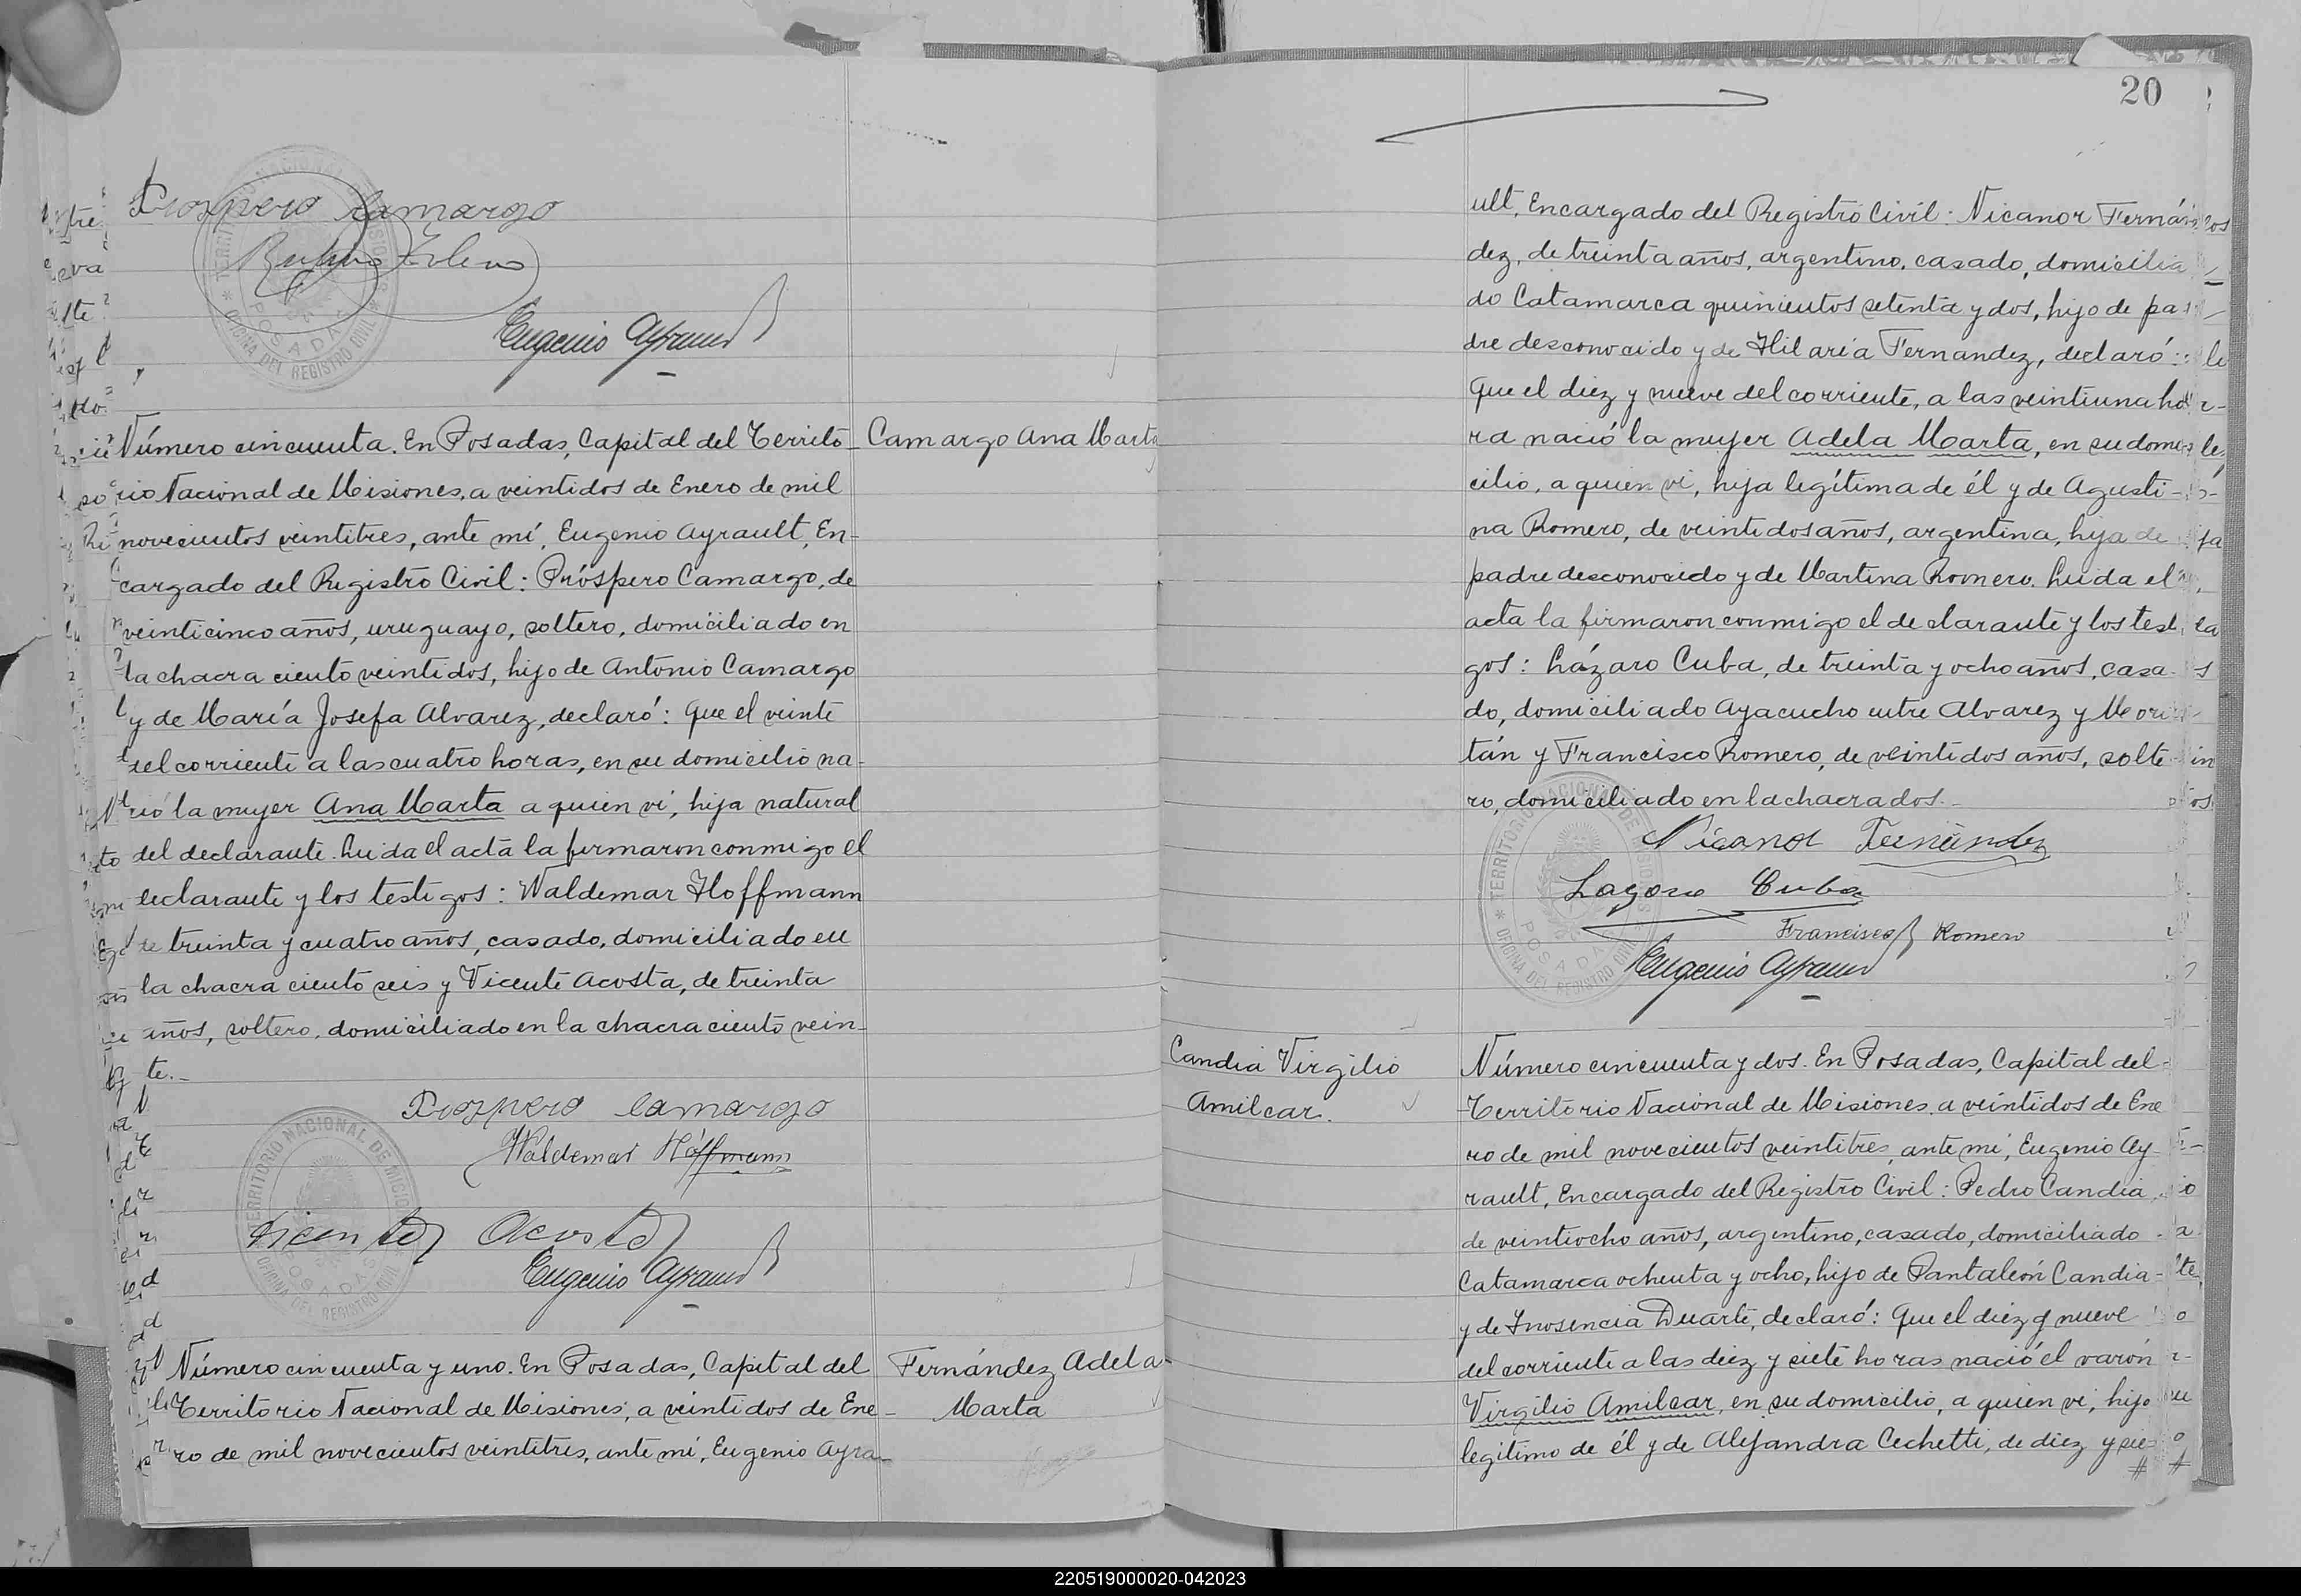 Prospero Camargo
Eugenio Ayrault
Número cincuenta. En Posadas, Capital del Territo-
rio Nacional de Misiones, a veintidos de Enero de mil
novecientos veintitres, ante mí, Eugenio Ayrault, En-
cargado del Registro Civil: Próspero Camargo, de
veinticinco años, uruguayo, soltero, domiciliado en
la chacra ciento veintidos, hijo de Antonio Camargo
y de María Josefa Alvarez, declaró: Que el veinte
del corriente a las cuatro horas, en su domicilio na-
ció la mujer Ana Marta a quien ví, hija natural
del declarante. Leida el acta la firmaron conmigo el
declarante y los testigos: Waldemar Hoffmann
de treinta y cuatro años, casado, domiciliado en
la chacra ciento seis y Vicente Acosta, de treinta
años, soltero, domiciliado en la chacra ciento vein-
te.-
Camargo Ana Marta
Prospero Camargo
Waldemar Hoffmann
Vicente Acosta
Eugenio Ayrault
TERRITORIO NACIONAL DE MISIONES
OFICINA DEL REGISTRO CIVIL
POSADAS
Número cincuenta y uno. En Posadas, Capital del
Territorio Nacional de Misiones, a veintidos de Ene-
ro de mil novecientos veintitres, ante mí, Eugenio Ayra-
Fernández Adela
Marta
20
ult, Encargado del Registro Civil: Nicanor Fernán-
dez, de treinta años, argentino, casado, domicilia
do Catamarca quinientos setenta y dos, hijo de pa
dre desconocido y de Hilaria Fernandez, declaró:
Que el diez y nueve del corriente, a las veintiuna ho
ra nació la mujer Adela Marta, en su domi-
cilio, a quien ví, hija legítima de él y de Agusti-
na Romero, de veintidos años, argentina, hija de
padre desconocido y de Martina Romero. Leida el
acta la firmaron conmigo el declarante y los testi
gos: Lázaro Cuba, de treinta y ocho años, casa-
do, domiciliado Ayacucho entre Alvarez y Mori
tán y Francisco Romero, de veintidos años, solte
ro, domiciliado en la chacra dos.-
Nicanor Fernández
Lazaro Cuba
Francisco Romero
Eugenio Ayrault
TERRITORIO NACIONAL DE MISIONES
OFICINA DEL REGISTRO CIVIL
POSADAS
Candia Virgilio
Amilcar.
Número cincuenta y dos. En Posadas, Capital del
Territorio Nacional de Misiones, a veintidos de Ene
ro de mil novecientos veintitres, ante mí, Eugenio Ay-
rault, Encargado del Registro Civil: Pedro Candia
de veintiocho años, argentino, casado, domiciliado
Catamarca ochenta y ocho, hijo de Pantaleón Candia-
y de Inosencia Duarte, declaró: Que el diez y nueve
del corriente a las diez y siete horas nació el varón
Virgilio Amilcar, en su domicilio, a quien ví, hijo
legítimo de él y de Alejandra Cechetti, de diez y sie
220519000020-042023